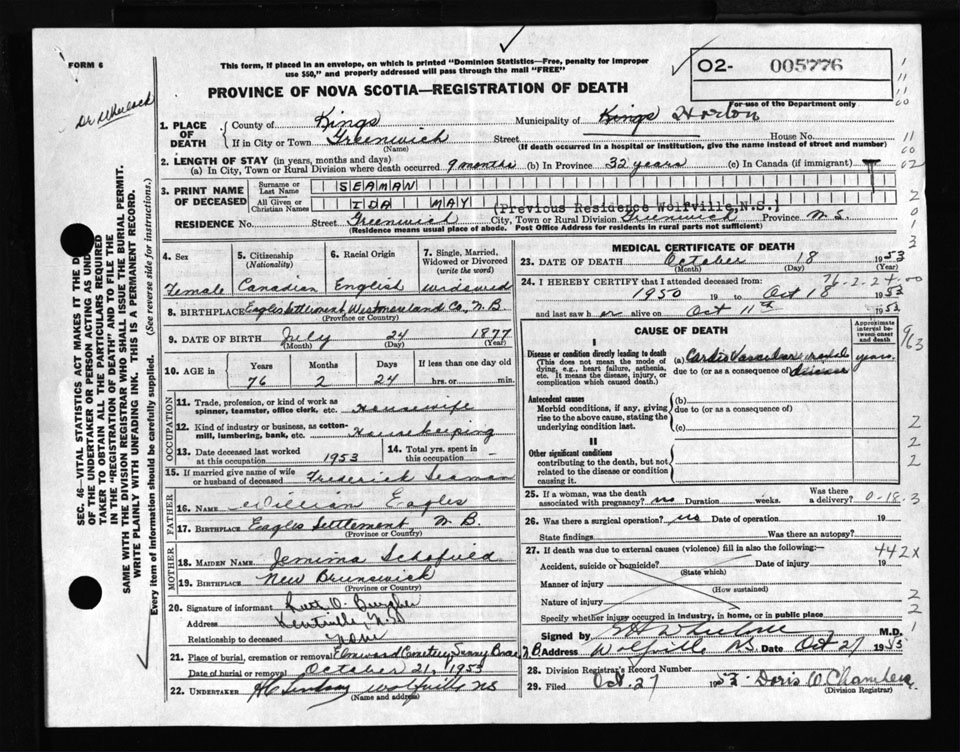 FORM 6
This form, if placed in an envelope, on which is printed "Dominion Statistics—Free, penalty for improper
use $50," and properly addressed will pass through the mail "FREE"
PROVINCE OF NOVA SCOTIA—REGISTRATION OF DEATH
02- 005776
For use of the Department only
1. PLACE OF DEATH { County of Kings Municipality of Kings Horton
If in City or Town Greenwich Street House No.
(Name) (If death occurred in a hospital or institution, give the name instead of street and number)
2. LENGTH OF STAY (in years, months and days)
(a) In City, Town or Rural Division where death occurred 9 months (b) In Province 32 years (c) In Canada (if immigrant)
3. PRINT NAME OF DECEASED { Surname or Last Name SEAMAN
All Given or Christian Names IDA MAY
(Previous Residence Wolfville, N.S.)
RESIDENCE No. Street Greenwich City, Town or Rural Division Greenwich Province N.S.
(Residence means usual place of abode. Post Office Address for residents in rural parts not sufficient)
SEC. 46—VITAL STATISTICS ACT MAKES IT THE D
OF THE UNDERTAKER OR PERSON ACTING AS UND
TAKER TO OBTAIN ALL THE PARTICULARS REQUIRED
IN THE "REGISTRATION OF DEATH" AND TO FILE THE
SAME WITH THE DIVISION REGISTRAR WHO SHALL ISSUE THE BURIAL PERMIT.
WRITE PLAINLY WITH UNFADING INK. THIS IS A PERMANENT RECORD.
Every item of information should be carefully supplied. (See reverse side for instructions.)
4. Sex Female
5. Citizenship (Nationality) Canadian
6. Racial Origin English
7. Single, Married, Widowed or Divorced (write the word) widowed
8. BIRTHPLACE Eagles Settlement, Westmoreland Co., N.B.
(Province or Country)
9. DATE OF BIRTH July 24 1877
(Month) (Day) (Year)
10. AGE in Years 76 Months 2 Days 24 If less than one day old hrs. or min.
OCCUPATION
11. Trade, profession, or kind of work as spinner, teamster, office clerk, etc. Housewife
12. Kind of industry or business, as cotton-mill, lumbering, bank, etc. Housekeeping
13. Date deceased last worked at this occupation 1953
14. Total yrs. spent in this occupation -
15. If married give name of wife or husband of deceased Frederick Seaman
FATHER
16. NAME William Eagles
17. BIRTHPLACE Eagles Settlement, N.B.
(Province or Country)
MOTHER
18. MAIDEN NAME Jemima Schofield
19. BIRTHPLACE New Brunswick
(Province or Country)
20. Signature of informant
Address Kentville N.S.
Relationship to deceased None
21. Place of burial, cremation or removal Elmwood Cemetery, Sunny Brae, N.B.
Date of burial or removal October 21, 1953
22. UNDERTAKER Lindsay Wolfville NS
(Name and address)
MEDICAL CERTIFICATE OF DEATH
23. DATE OF DEATH October 18 1953
(Month) (Day) (Year)
76-2-24-00
24. I HEREBY CERTIFY that I attended deceased from:
1950 19 to Oct 18 1953
and last saw her alive on Oct 11th 1953
CAUSE OF DEATH
Approximate interval between onset and death
I
Disease or condition directly leading to death
(This does not mean the mode of dying, e.g., heart failure, asthenia, etc. It means the disease, injury, or complication which caused death.)
(a) Cardio Vascular disease years.
due to (or as a consequence of)
Antecedent causes
Morbid conditions, if any, giving rise to the above cause, stating the underlying condition last.
(b)
due to (or as a consequence of)
(c)
II
Other significant conditions
contributing to the death, but not related to the disease or condition causing it.
25. If a woman, was the death associated with pregnancy? no Duration weeks. Was there a delivery? 0-18-3
26. Was there a surgical operation? no Date of operation 19
State findings Was there an autopsy?
27. If death was due to external causes (violence) fill in also the following:— 442X
Accident, suicide or homicide? Date of injury 19
(State which)
Manner of injury
(How sustained)
Nature of injury
Specify whether injury occurred in industry, in home, or in public place
Signed by M.D.
Address Wolfville N.S. Date Oct 27 1953
28. Division Registrar's Record Number
29. Filed Oct. 27 1953 Doris O. Chambers
(Division Registrar)